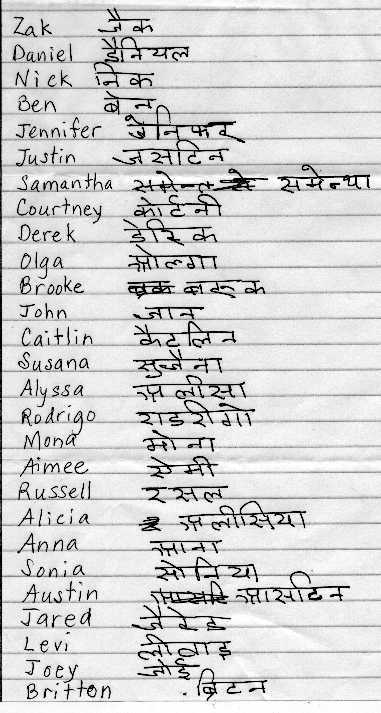 Zak जैक
Daniel डैनियल
Nick निक
Ben बेन
Jennifer जेनिफर
Justin जसटिन
Samantha समेन्था
Courtney कोर्टनी
Derek डेरिक
Olga ओल्गा
Brooke बरूक
John जान
Caitlin कैटलिन
Susana सुजैना
Alyssa अलीसा
Rodrigo राडरीगो
Mona मोना
Aimee ऐमी
Russell रसल
Alicia अलीसिया
Anna आना
Sonia सोनिया
Austin आसटिन
Jared जैरेड
Levi लीवाइ
Joey जोई
Britton ब्रिटन